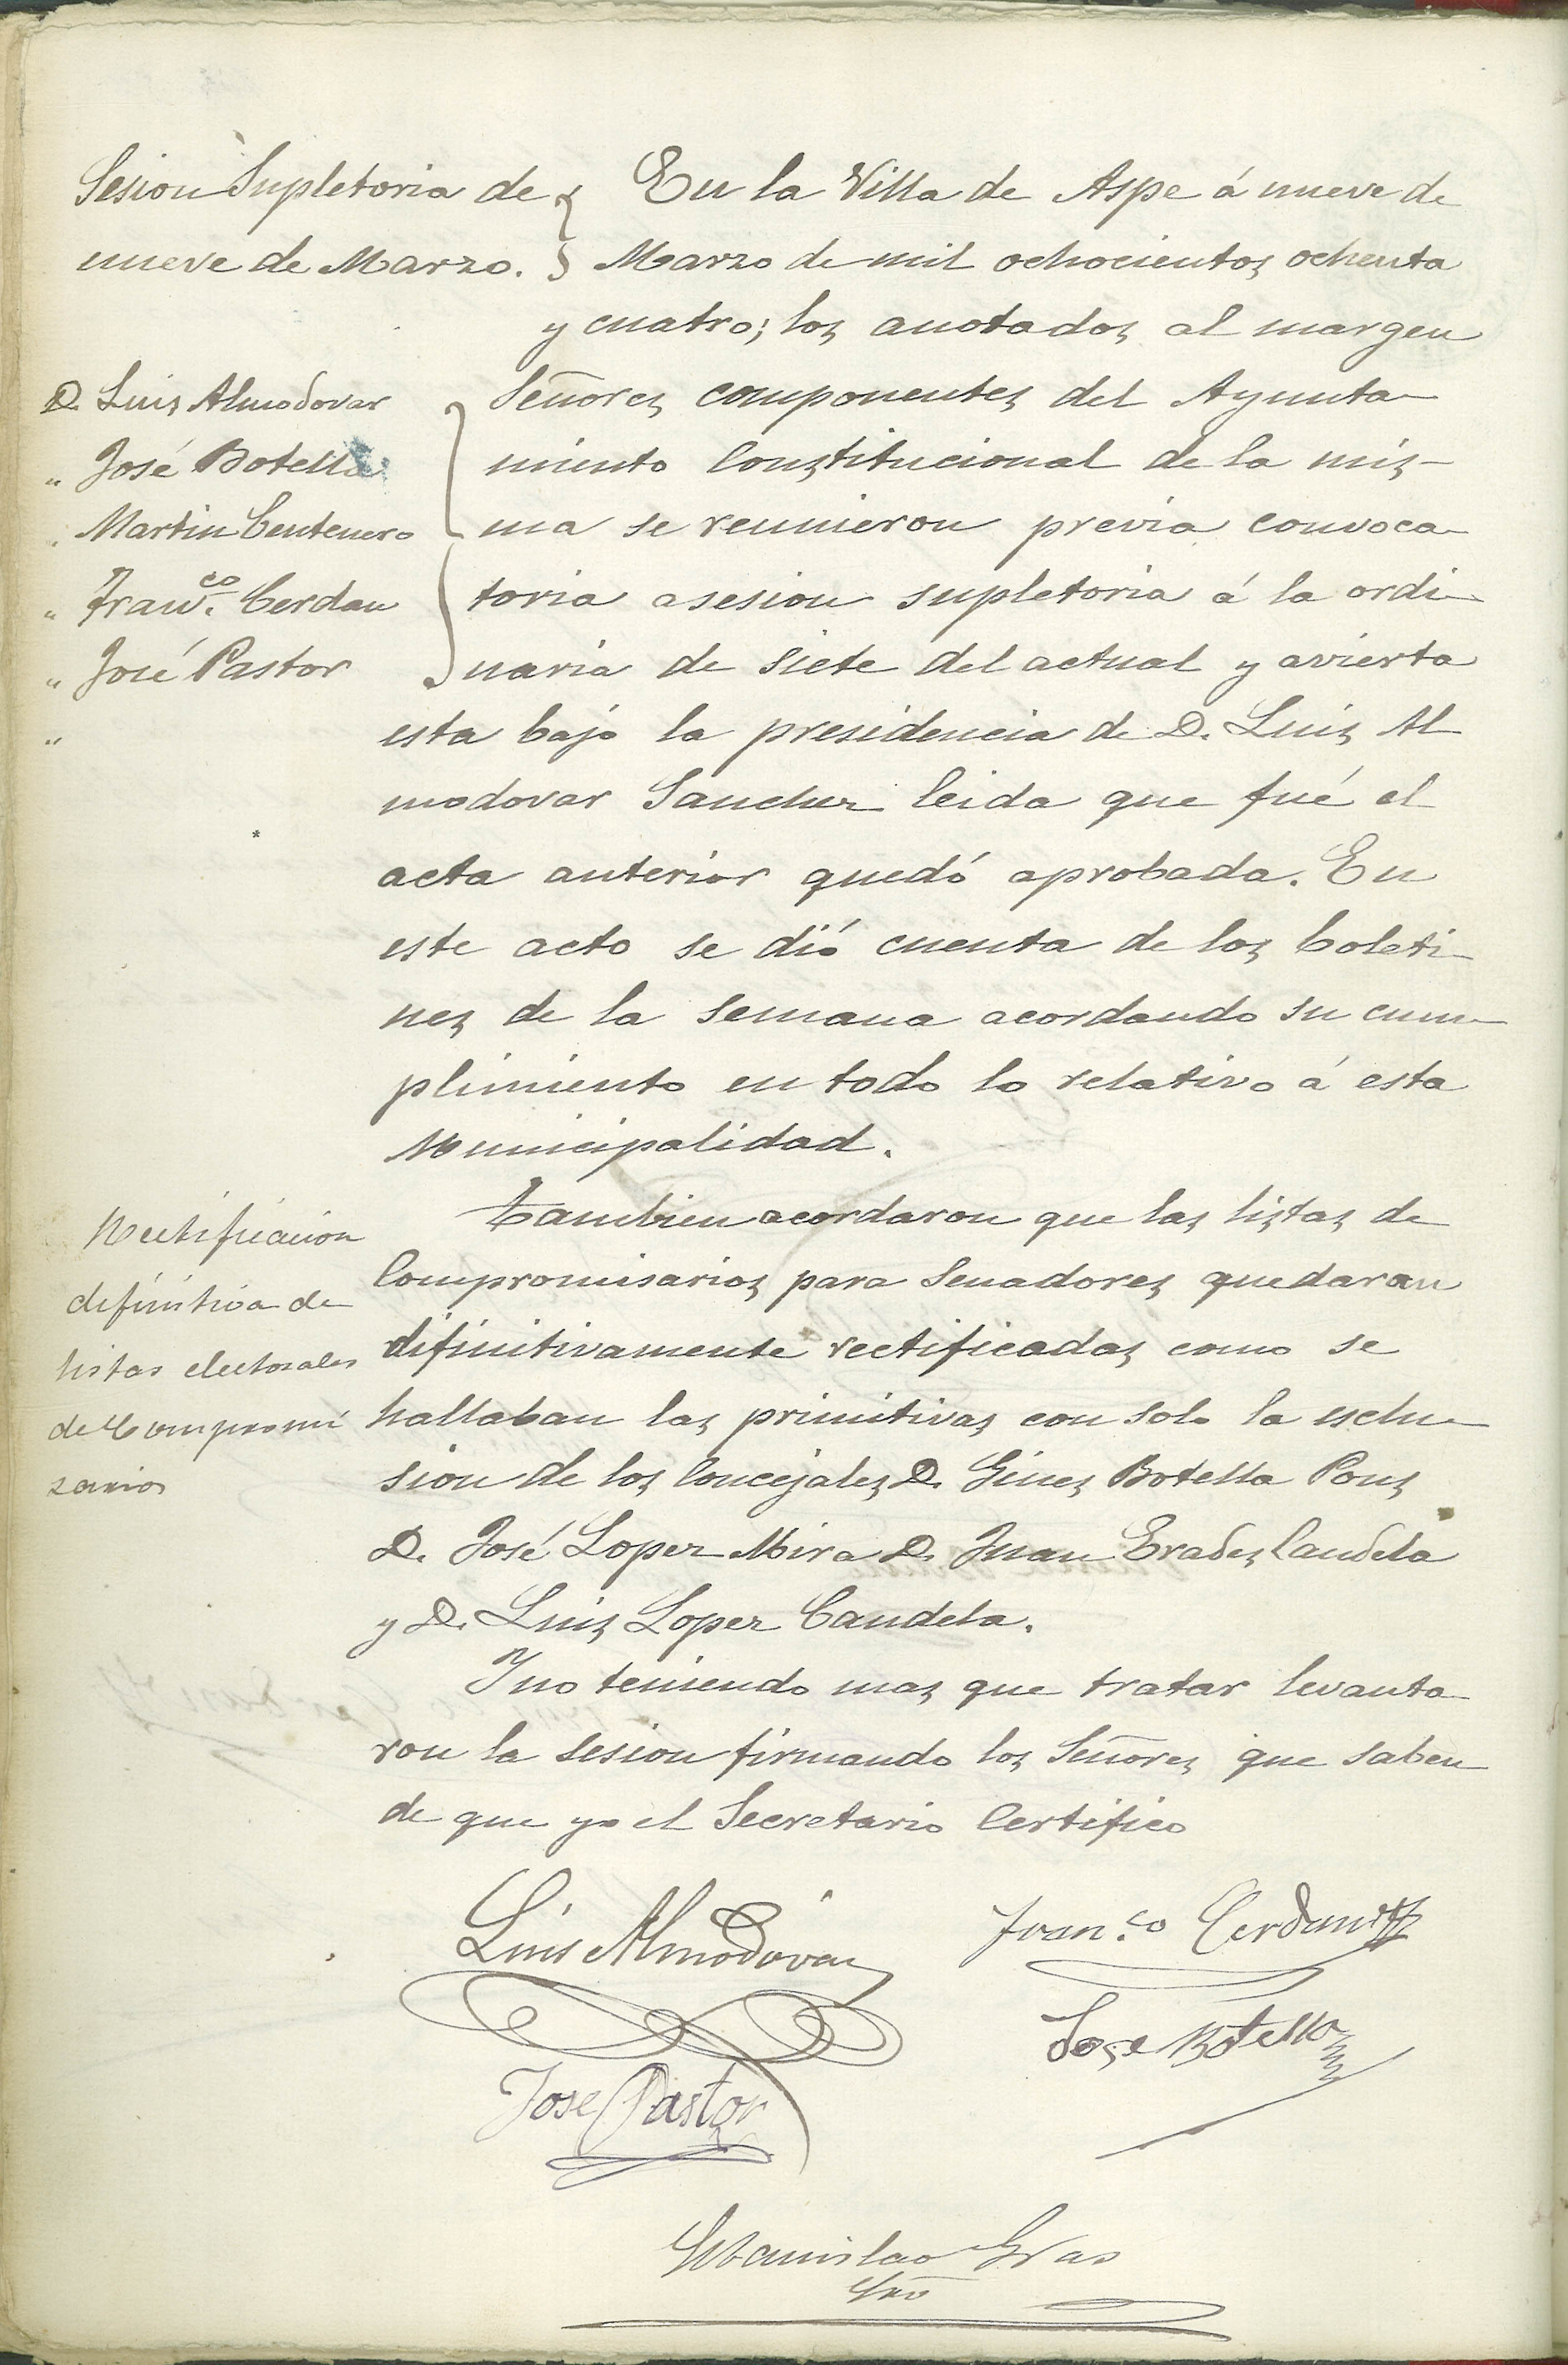 Sesion Supletoria de
nueve de Marzo.
En la Villa de Aspe á nueve de
Marzo de mil ochocientos ochenta
y cuatro; los anotados al margen
D. Luis Almodovar
" José Botella
" Martin Centenero
" Franco. Cerdan
" José Pastor
"
Señores componentes del Ayunta-
miento Constitucional de la mis-
ma se reunieron previa convoca-
toria asesion supletoria á la ordi-
naria de siete del actual y avierta
esta bajo la presidencia de D. Luis Al
modovar Sanchez leida que fué el
acta anterior quedó aprobada. En
este acto se dió cuenta de los boleti-
nes de la semana acordando su cum-
plimiento en todo lo relativo á esta
Municipalidad.
Rectificacion
difinitiva de
listas electorales
de Compromi
sarios
Tambien acordaron que las listas de
Compromisarios para Senadores quedaran
difinitivamente rectificadas como se
hallaban las primitivas con solo la esclu-
sion de los Concejales D. Gines Botella Pons
D. José Lopez Mira D. Juan Erades Candela
y D. Luis Lopez Candela.
Y no teniendo mas que tratar levanta-
ron la sesion firmando los Señores que saben
de que yo el Secretario Certifico
Luis Almodóvar
Franco. Cerdan
Jose Botella
Jose Pastor
Estanislao Gras
Srio